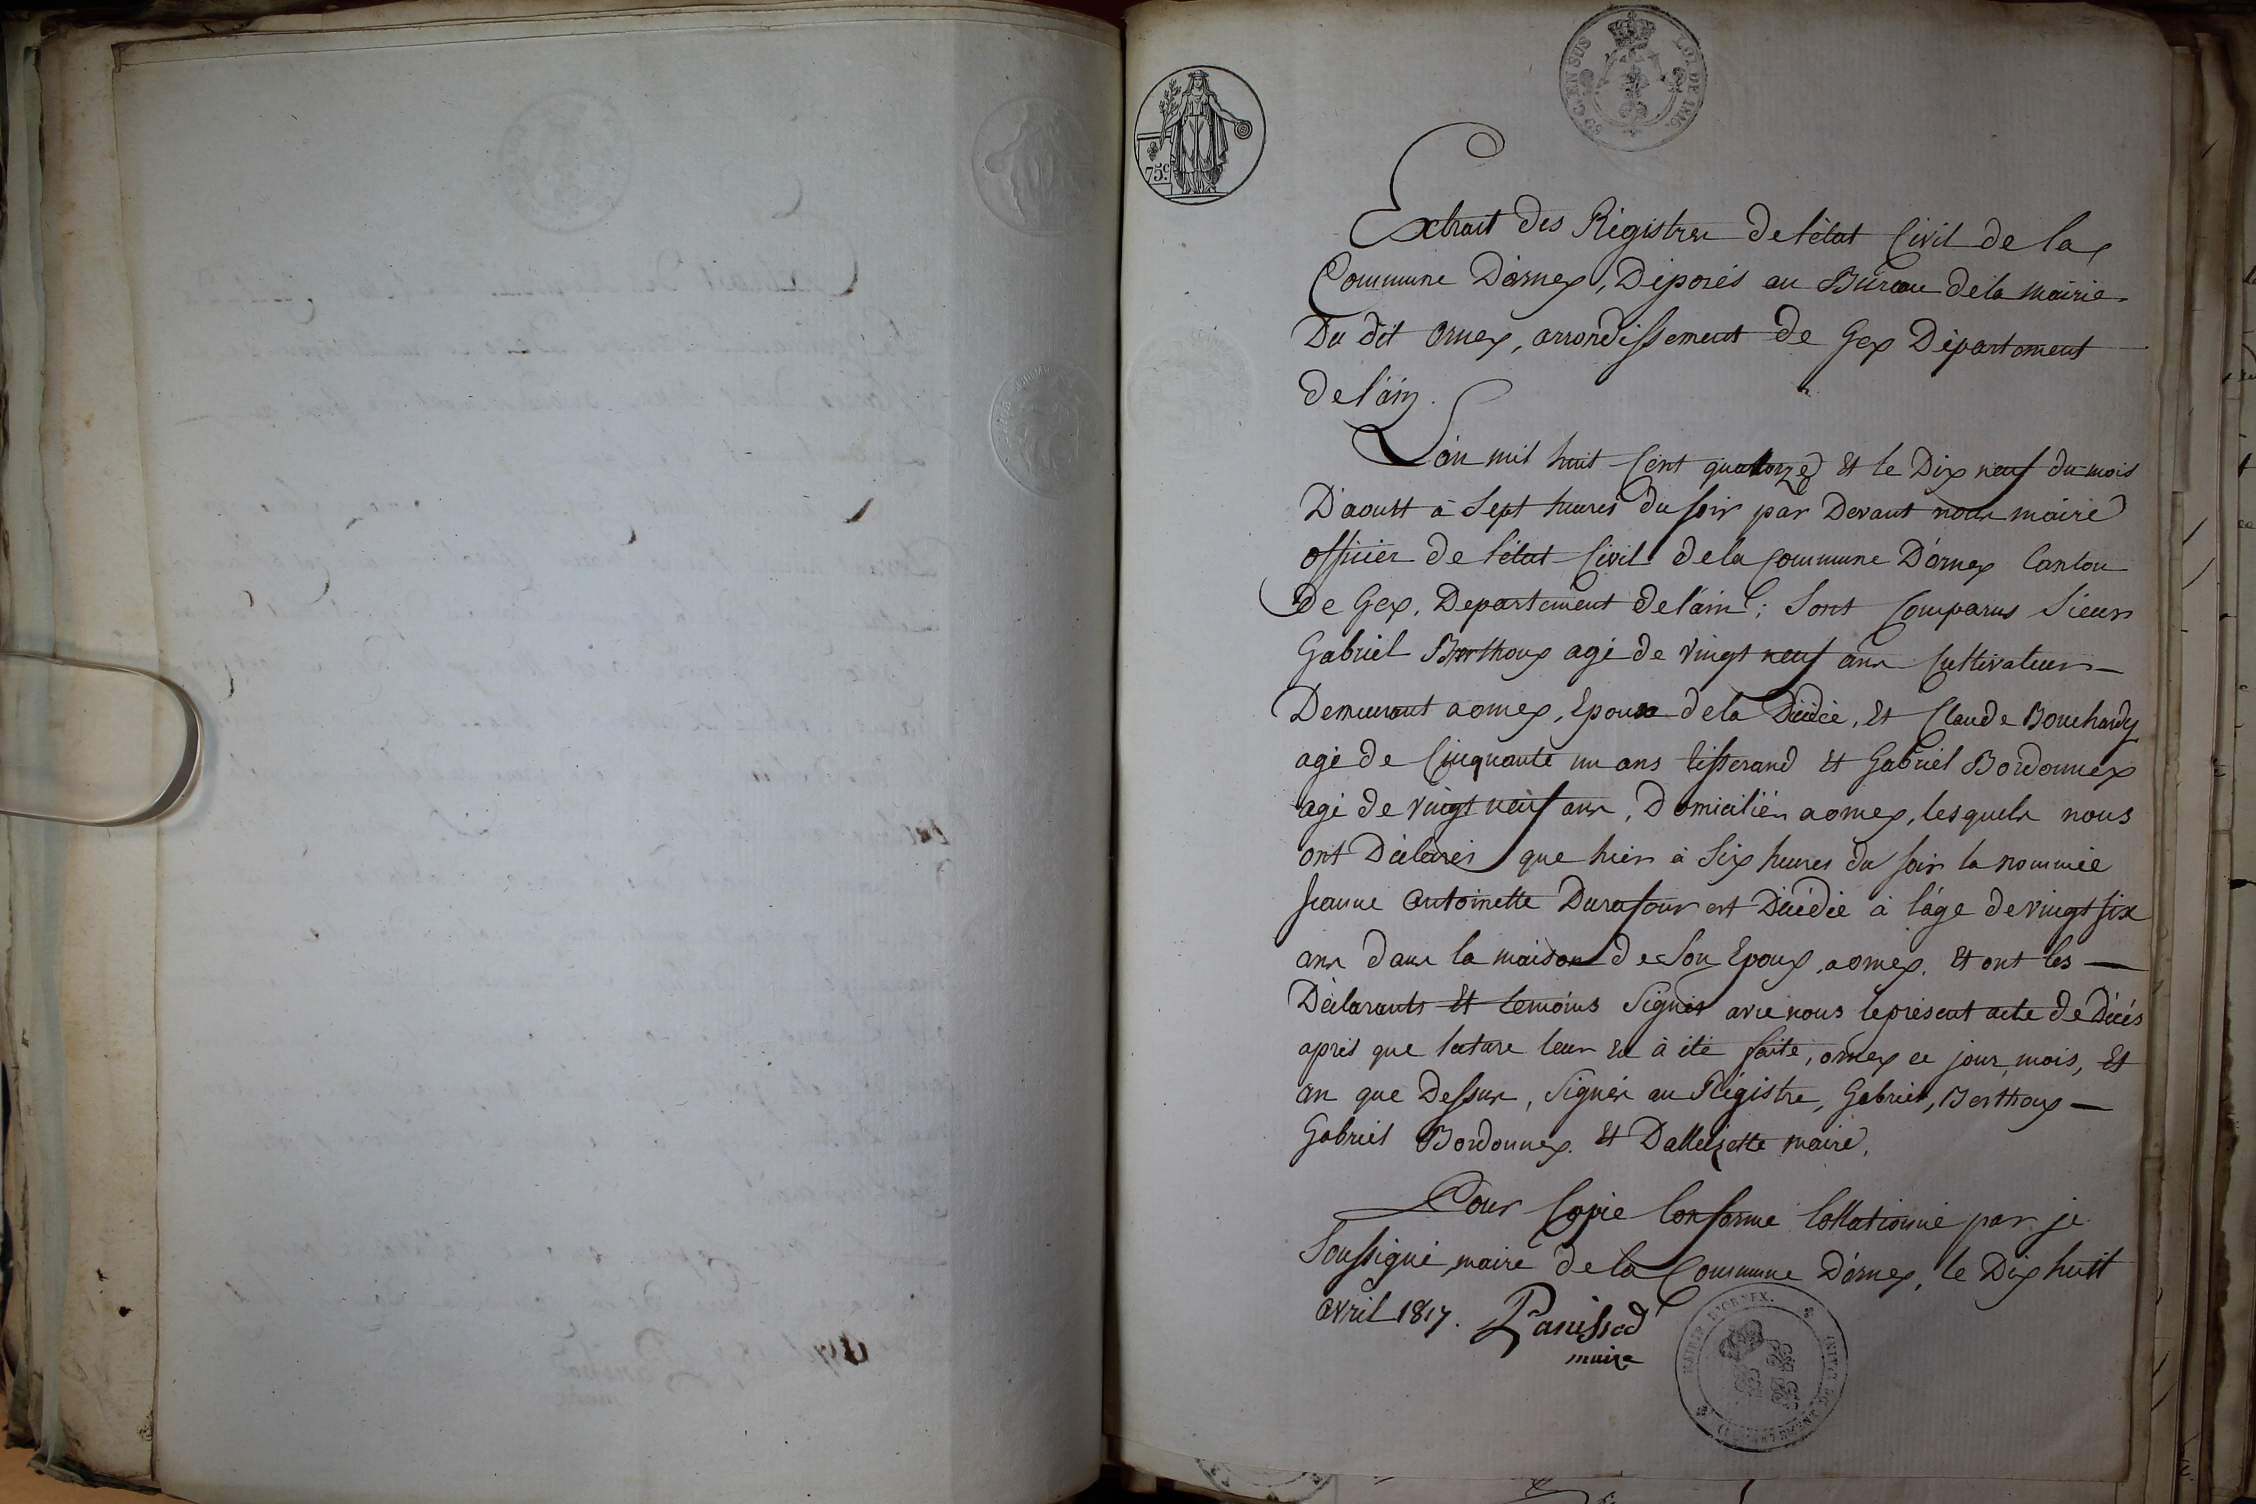 50 C. EN SUS
LOI DE 1816.
75c
Extrait des Régistres de l'état Civil de la
Commune D'ornex, Déposés au Bureau de la mairie
Du dit Ornex, arrondissement de Gex Département
de l'ain.
L'an mil huit Cent quatorze et le Dix neuf du mois
D'aoust à Sept heures du soir par Devant nous maire
officier de l'état Civil de la Commune D'ornex Canton
De Gex, Departement de l'ain ; Sont Comparus Sieurs
Gabriel Berthoux agé de vingt neuf ans Cultivateur
Demeurant a ornex, Epoux de la Décédée, Et Claude Bouchardy
agé de Cinquante un ans tisserand et Gabriel Bordonnex
agé de vingt neuf ans, Domiciliés a ornex, lesquels nous
ont Déclarés que hier à Six heures du soir la nommée
jeanne Antoinette Durafour est Décédée à l'age de vingt six
ans dans la maison de Son Epoux, a ornex. Et ont les
Déclarants Et temoins Signés avec nous le présent acte de Décés
aprés que lecture leur en à été faite, ornex ce jour, mois, et
an que Dessus, Signés au Régistre, Gabriel, Berthoux
Gabriel Bordonnex. Et Dalleizette maire.
Pour Copie Conforme Collationné par je
Soussigné maire de la Commune D'ornex, le Dix huit
avril 1817. Panissod
maire
MAIRIE D'ORNEX.
DEPARTEMENT DE L'AIN